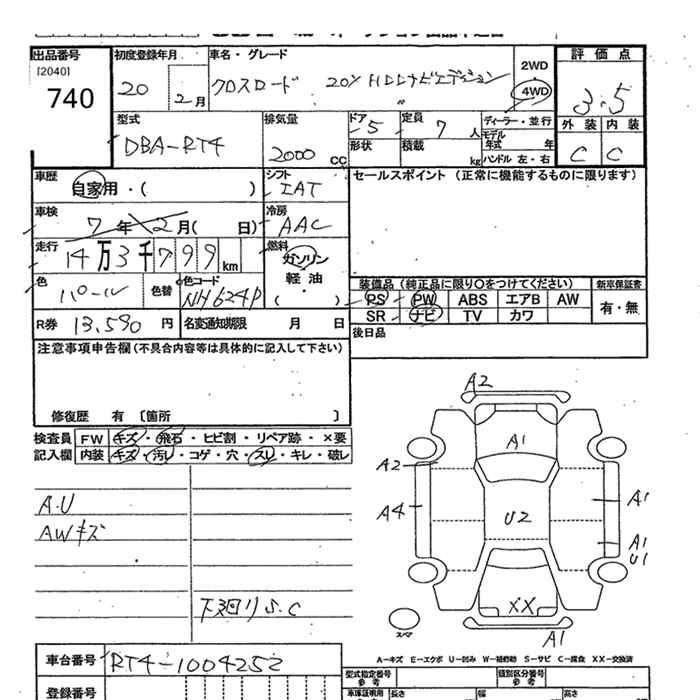 出品番号 初度登録年月 車名・グレード 評価点
[2040]
740
20 2月 クロスロード 20X HDDナビエディション 2WD
4WD
3.5
型式 排気量 ドア 定員 ディーラー・並行 外装 内装
DBA-RT4 2000cc 5 7人 モデル年式 年 C C
形状 積載 kg ハンドル 左・右
車歴 シフト セールスポイント (正常に機能するものに限ります)
自家用・( ) IAT
車検 冷房
7年2月( 日) AAC
走行 燃料
14万3千799km ガソリン
軽油
( )
色 色替 色コード 装備品 (純正品に限り○をつけてください) 新車保証書
パール NH624P PS PW ABS エアB AW 有・無
SR ナビ TV カワ
R券 13,590円 名変通知期限 月 日 後日品
注意事項申告欄 (不具合内容等は具体的に記入して下さい)
修復歴 有 〔箇所 〕
検査員 FW キズ・飛石・ヒビ割・リペア跡・×要
記入欄 内装 キズ・汚レ・コゲ・穴・スレ・キレ・破レ
A.U
AWキズ
下廻りS.C
A2
A1
A2
A4
A1
U2
A1
U1
XX
A1
スペア
A-キズ E-エクボ U-凹み W-補修跡 S-サビ C-腐食 XX-交換済
車台番号 RT4-1004252
型式指定番号 類別区分番号
参考 参考
登録番号
車庫証明用 長さ 幅 高さ